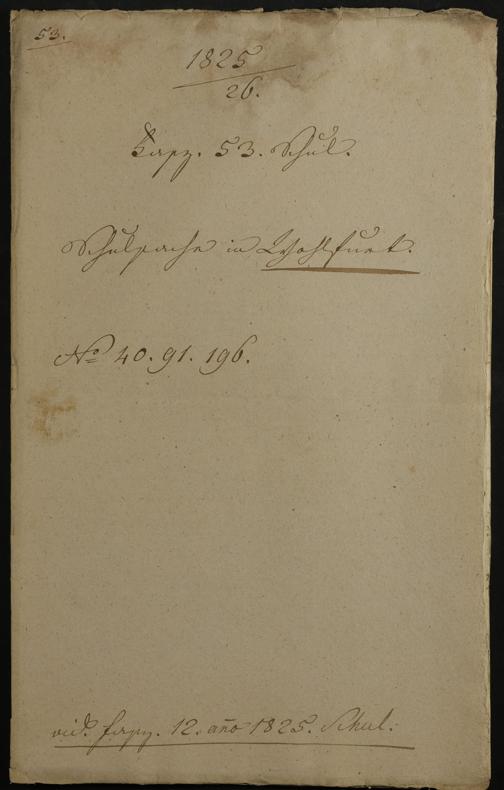 53.
1825
26.
Fasz. 53. Schul.
Schulsache in Wohlfurt.
No 40. 91. 196.
vid. fasz. 12. año 1825. Schul.